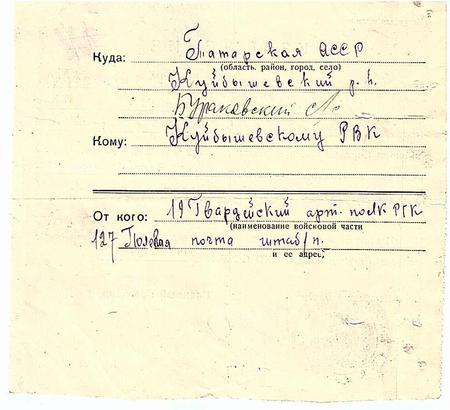 Куда: Татарская АССР
(область. район, город, село)
Куйбышевский р.н.
Бураковский с/с
Кому: Куйбышевскому РВК
От кого: 19 Гвардейский арт. полк РГК
(наименование войсковой части
127 Полевая почта штаб/п.
и ее адрес)